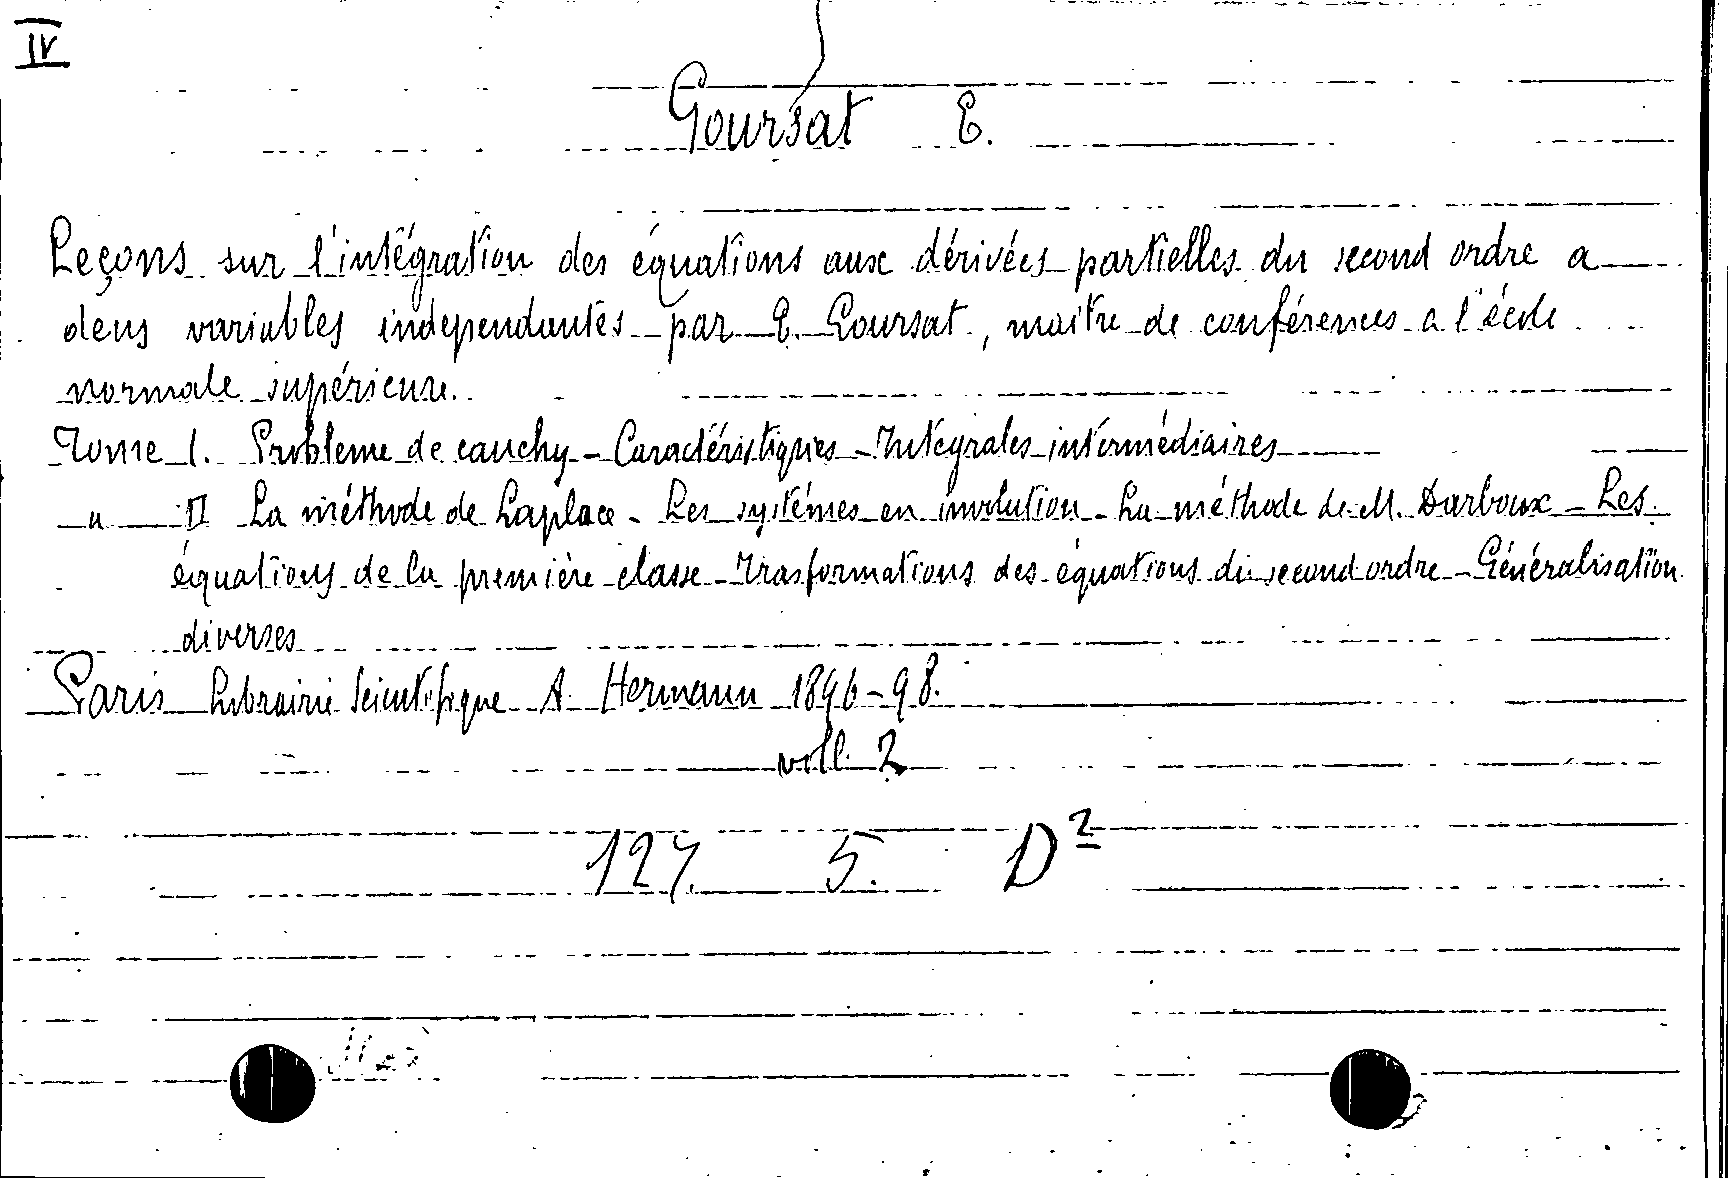 IV
Goursat E.
Leçons sur l'intégration des équations aux dérivées partielles du second ordre a
deux variables independantes par E. Goursat, maitre de conférences a l'école
normale supérieure.
Tome I. Probleme de cauchy - Caractéristiques - Integrales intermédiaires
" II La méthode de Laplace - Les systémes en involution - La méthode de M. Darboux - Les
équations de la première classe - Trasformations des équations du second ordre - Généralisation
diverses
Paris Librairie Scientifique A. Hermann 1896-98.
voll. 2
127. 5. D²